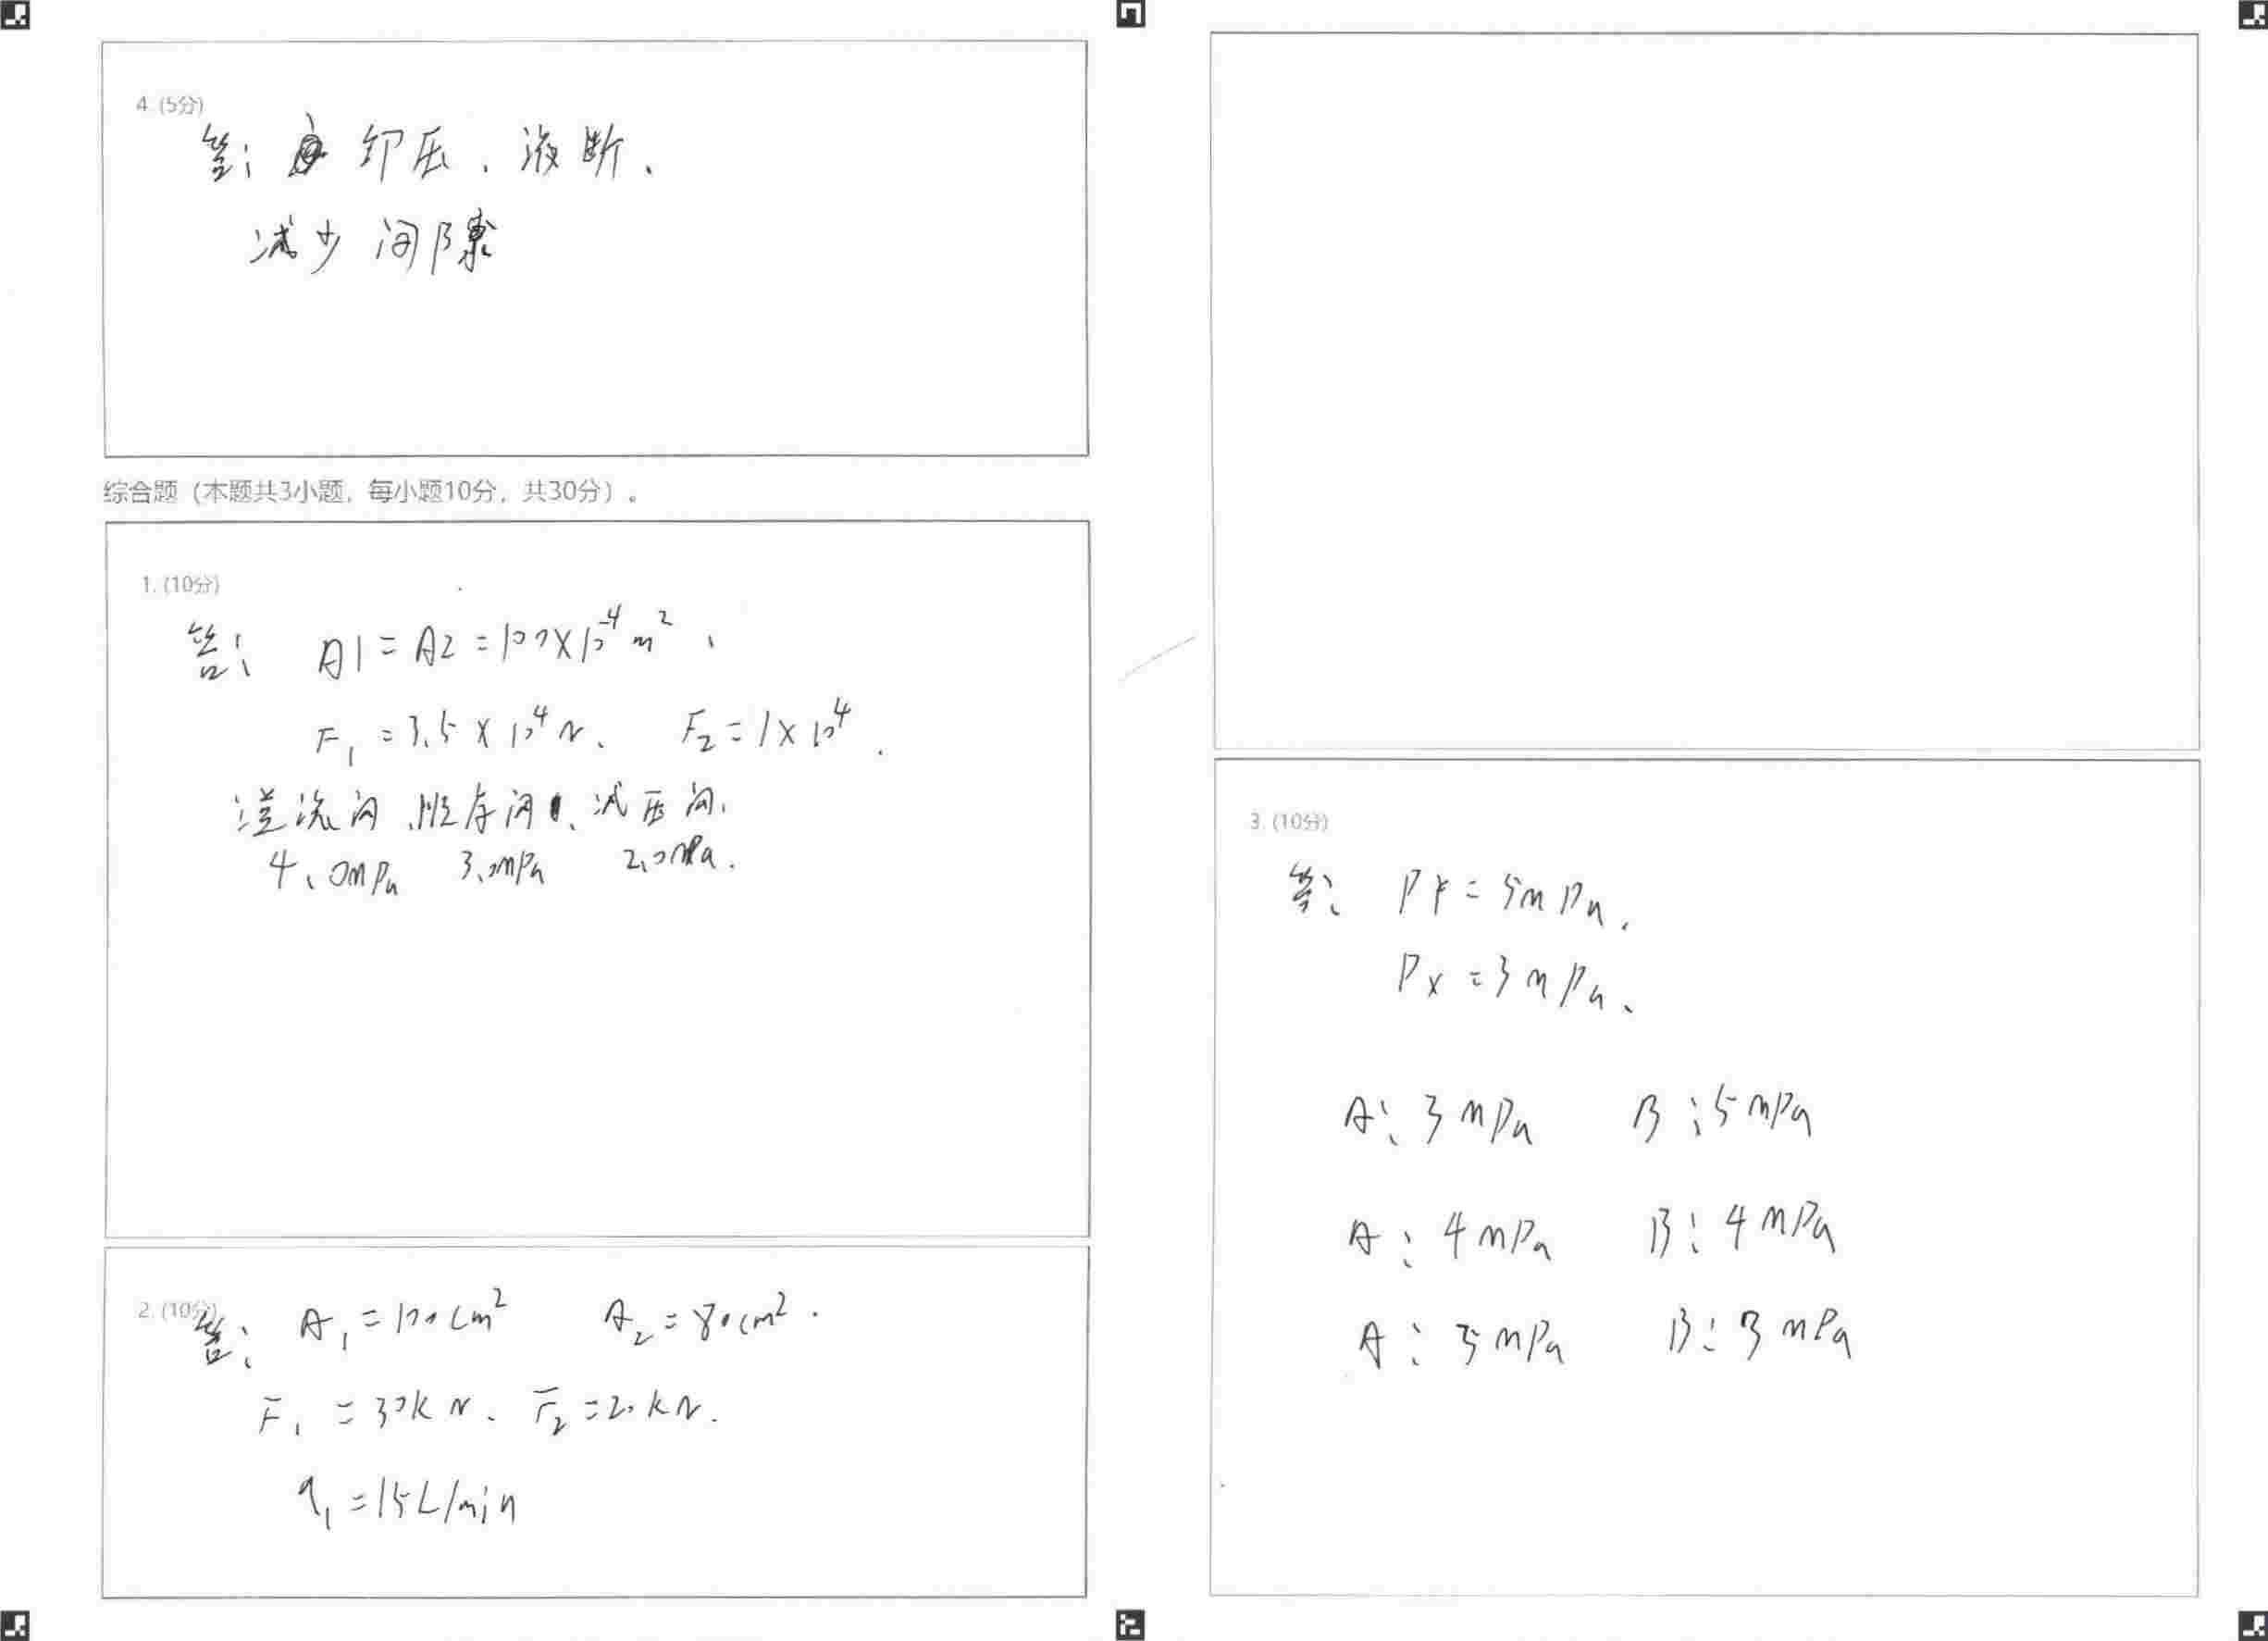 4. (5分)
答: 卸压、液断、
减少间隙
综合题 (本题共3小题, 每小题10分, 共30分) 。
1. (10分)
答: A1 = A2 = 100×10⁻⁴ m²、
F₁ = 3.5 × 10⁴ N、 F₂ = 1×10⁴.
溢流阀、顺序阀、减压阀、
4.0MPa 3.0MPa 2.0MPa.
2. (10分)
答: A₁ = 100cm² A₂ = 80cm².
F₁ = 30KN、 F₂ = 20KN.
q₁ = 15L/min
3. (10分)
答: PY = 5MPa、
Px = 3MPa、
A: 3MPa B: 5MPa
A: 4MPa B: 4MPa
A: 5MPa B: 3MPa